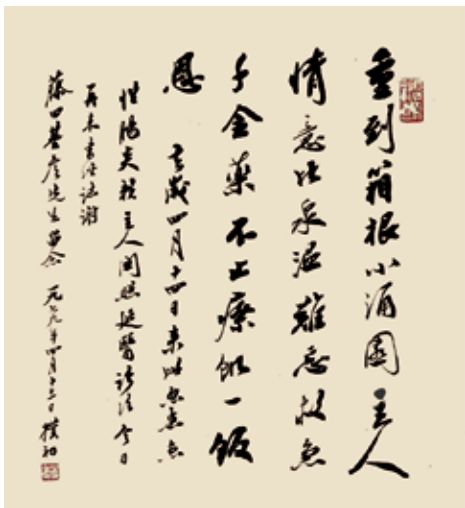 重到箱根小涌園主人
情意比泉温難忘救急
千金藥不止療飢一飯
恩 去歲四月十四日来此忽患急
性腸炎賴主人関照延醫診治今日
再来書此誌謝
藤田基彦先生留念 一九七九年四月十三日 樸初